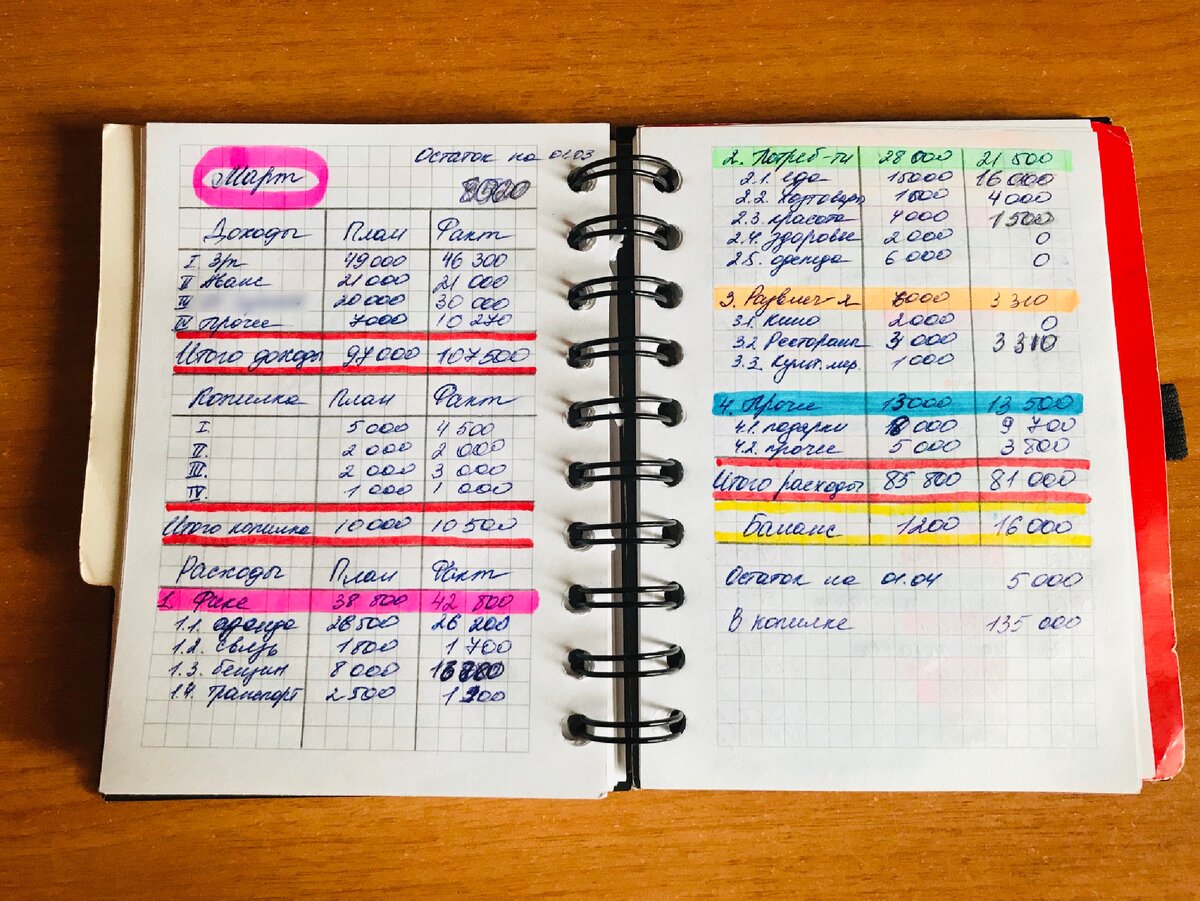 Остаток на 01.03
Март
Доходы План Факт
I Зп 49 000 46 300
II Аванс 21 000 21 000
III 20 000 30 000
IV Прочее 7000 10 270
Итого доходы 97 000 107 500
Копилка План Факт
I. 5 000 4 500
II. 2 000 2 000
III. 2 000 3 000
IV. 1 000 1 000
Итого копилка 10 000 10 500
Расходы План Факт
1. Фикс 38 800 42 800
1.1. аренда 26 500 26 200
1.2. связь 1800 1 700
1.3. бензин 8 000
1.4. Транспорт 2 500
2. Потреб-ти 28 000 21 500
2.1. еда 15000 16 000
2.2. Хозтовары 4 000
2.3. красота 4 000 1 500
2.4. здоровье 2 000 0
2.5. одежда 6 000 0
3. Развлеч-я 6000 3 310
3.1. Кино 2000 0
3.2 Рестораны 3 000 3 310
3.3. Культ. мер. 1 000
4. Прочее 13000 13 500
4.1. подарки 8 000 9 700
4.2. прочее 5 000 3 800
Итого расходы 85 800 81 000
Баланс 1200 16 000
Остаток на 01.04 5 000
В копилке 135 000